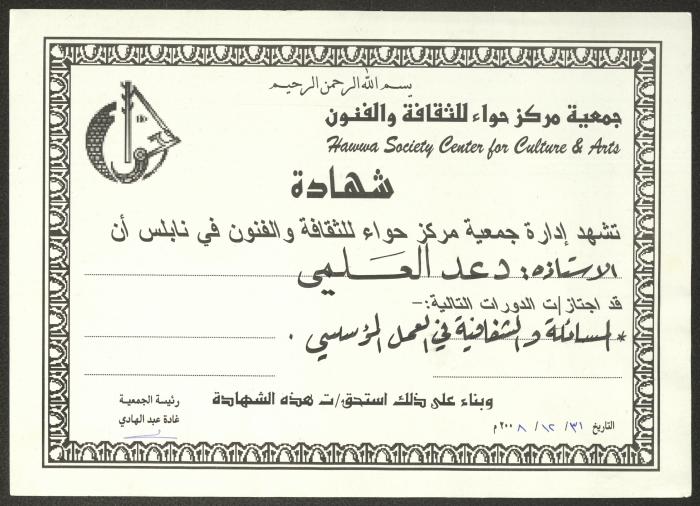 بسم الله الرحمن الرحيم
جمعية مركز حواء للثقافة والفنون
Hawwa Society Center for Culture & Arts
شهادة
تشهد إدارة جمعية مركز حواء للثقافة والفنون في نابلس أن
الاستاذه: دعد العلمي
قد اجتاز/ت الدورات التالية:-
* المسائلة والشفافية في العمل المؤسسي .
وبناء على ذلك استحق/ت هذه الشهادة
رئيسة الجمعية
غادة عبد الهادي
التاريخ ٣١/ ١٢/ ٢٠٠٨م